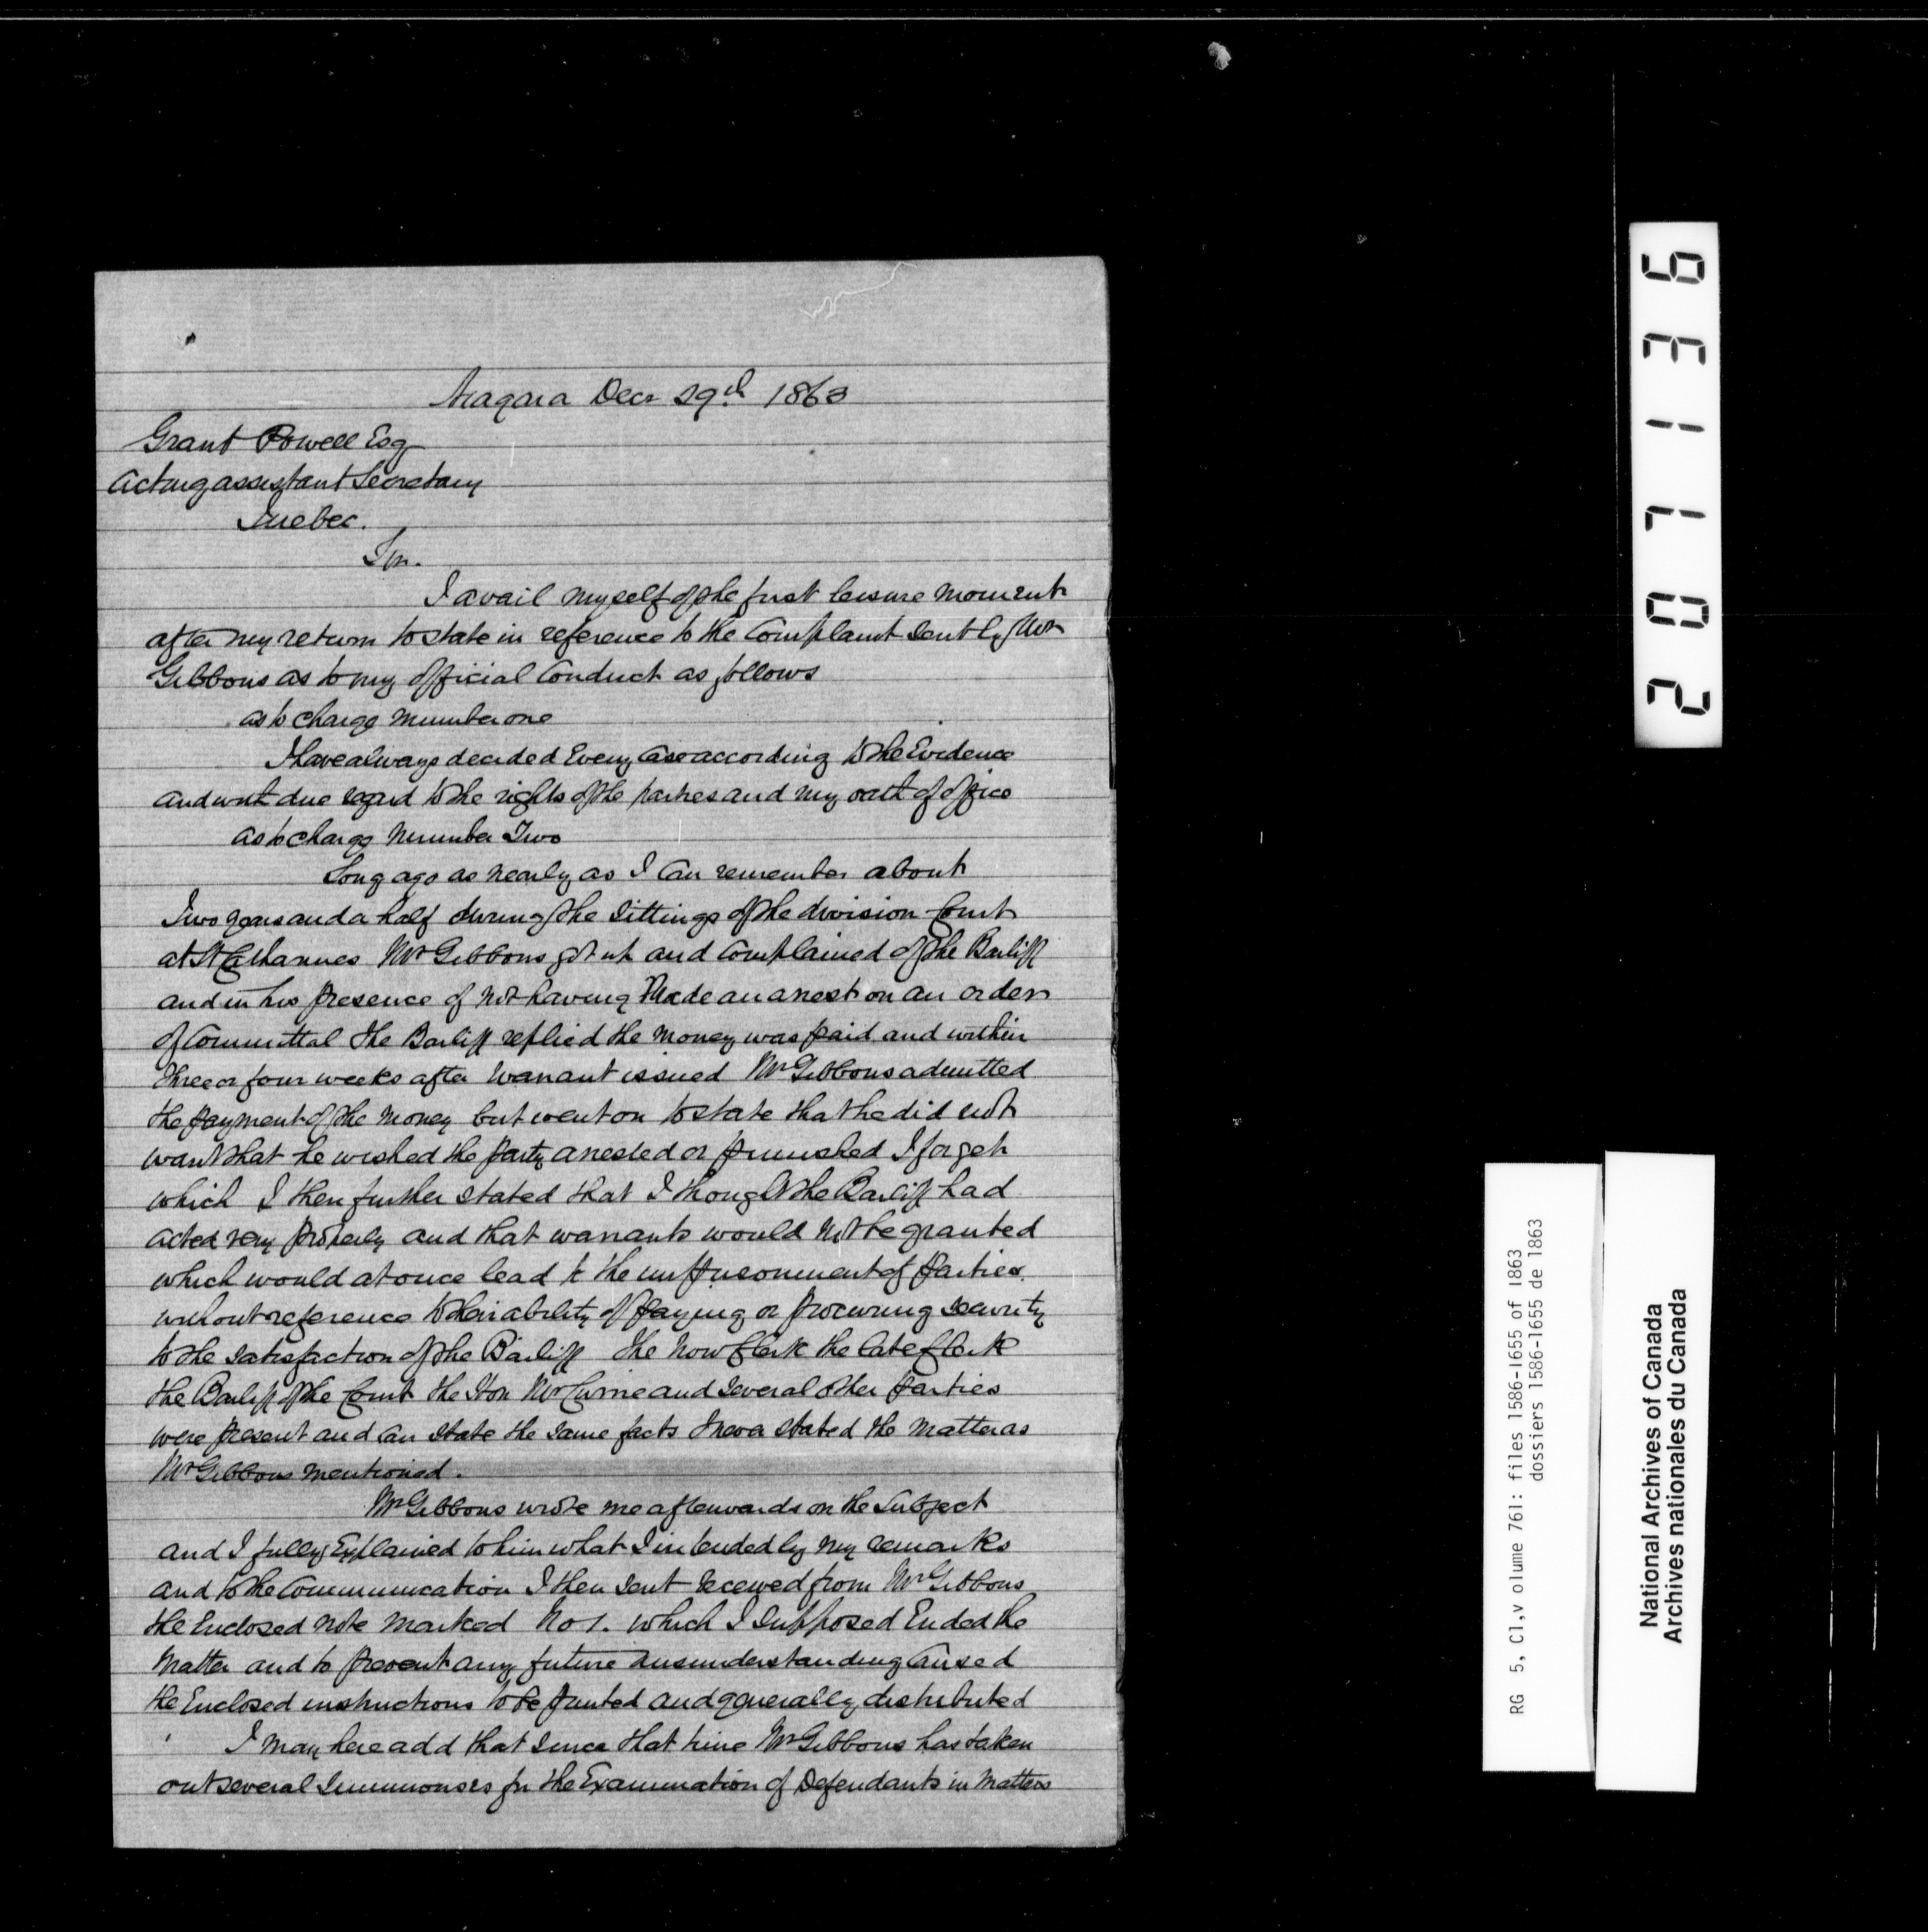 Niagara Decr 29th 1863
Grant Powell Esq
Acting assistant Secretary
Quebec.
Sir.
I avail myself of the first leisure moment
after my return to state in reference to the Complaint sent by Mr
Gibbons as to my official Conduct as follows
as to charge number one
I have always decided Every Case according to the Evidence
and with due regard to the rights of the parties and my oath of office
as to charge Number Two
Long ago as nearly as I can remember about
Two years and a half during the Sittings of the division Court
at St Catharines Mr Gibbons got up and Complained of the Bailiff
and in his presence of not having Made an arrest on an order
of Committal the Bailiff replied the Money was paid and within
three or four weeks after Warrant issued Mr Gibbons admitted
the payment of the Money but went on to state that he did not
want that he wished the party arrested or punished I forget
which I then further stated that I thought the Bailiff had
acted very properly and that warrants would not be granted
which would at once lead to the imprisonment of Parties
without reference to their ability of paying or procuring Security
to the Satisfaction of the Bailiff the Now Clerk the late Clerk
the Bailiff of the Court the Hon Mr Currie and Several other Parties
were present and can state the same facts I never stated the Matter as
Mr Gibbons mentioned.
Mr Gibbons wrote me afterwards on the Subject
and I fully Explained to him what I intended by my remarks
and to the Communication I then sent received from Mr Gibbons
the Enclosed Note Marked No 1. which I supposed Ended the
Matter and to prevent any future misunderstanding Caused
the Enclosed instructions to be printed and generally distributed
I may here add that since that time Mr Gibbons has taken
out several Summonses for the Examination of Defendants in Matters
207136
RG 5, C1,v olume 761: files 1586-1655 of 1863
dossiers 1586-1655 de 1863
National Archives of Canada
Archives nationales du Canada